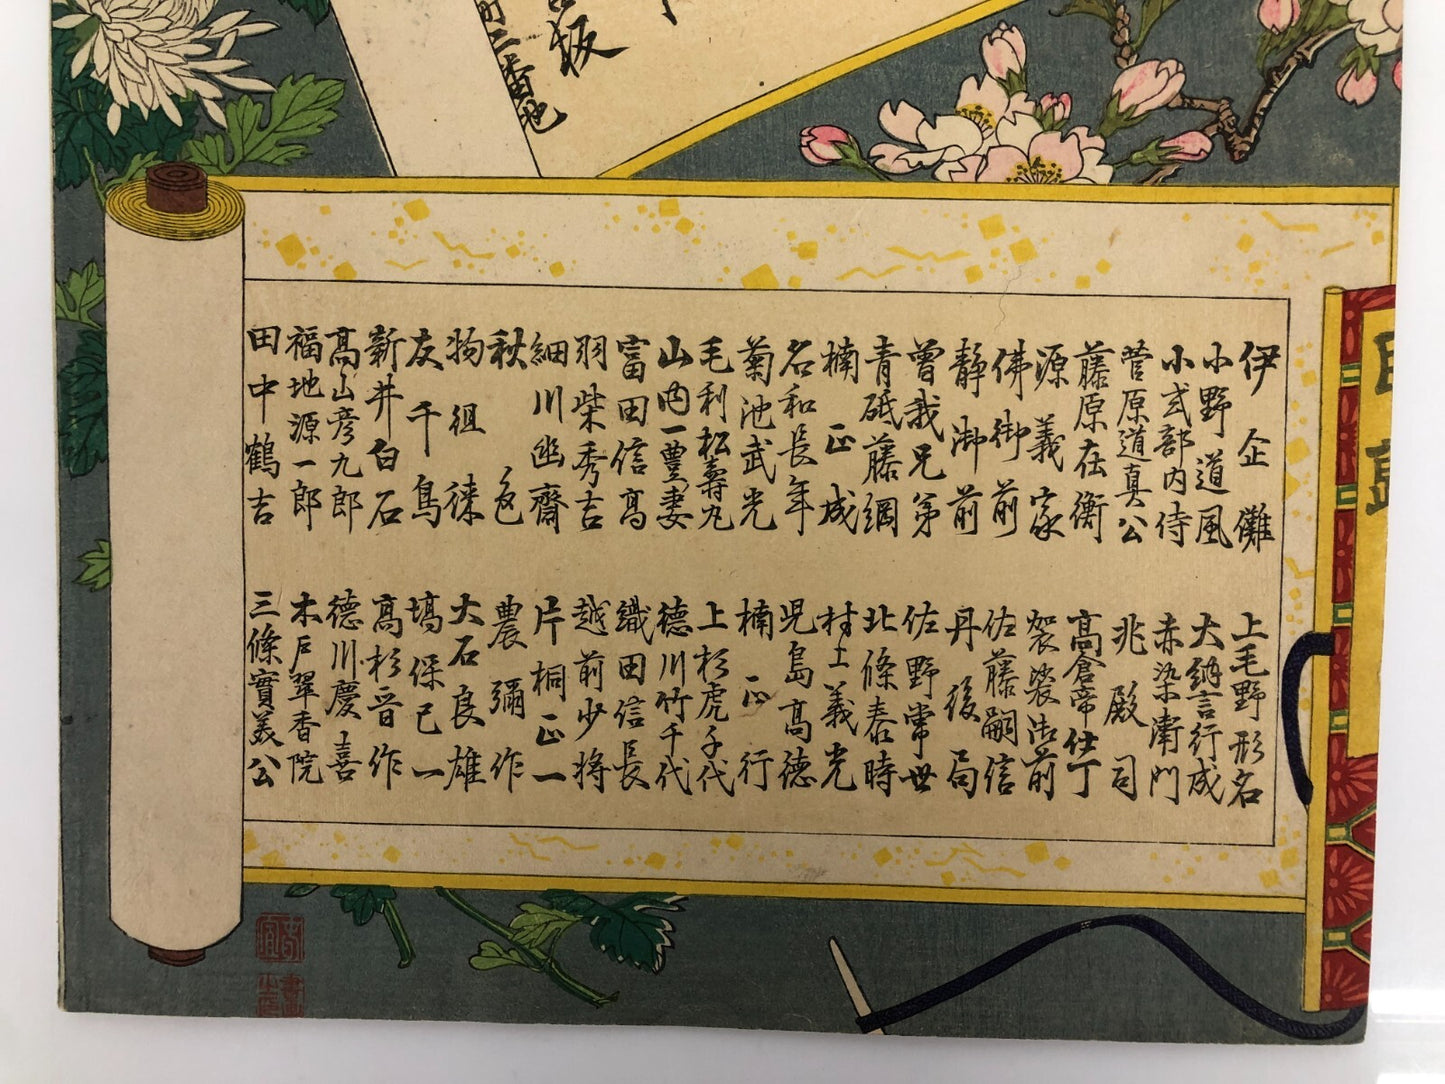 板
町二番地
目
録
伊企儺
小野道風
小式部内侍
菅原道真公
藤原在衡
源義家
佛御前
静御前
曽我兄弟
青砥藤綱
楠正成
名和長年
菊池武光
毛利松寿丸
山内一豊妻
富田信高
羽柴秀吉
細川幽齋
秋色
物徂徠
友千鳥
新井白石
高山彦九郎
福地源一郎
田中鶴吉
上毛野形名
大納言行成
赤染衛門
兆殿司
高倉帝仕丁
袈裟御前
佐藤嗣信
丹後局
佐野常世
北條泰時
村上義光
児島高徳
楠正行
上杉虎千代
徳川竹千代
織田信長
越前少将
片桐正一
農彌作
大石良雄
塙保己一
高杉晋作
徳川慶喜
木戸翠香院
三條實美公